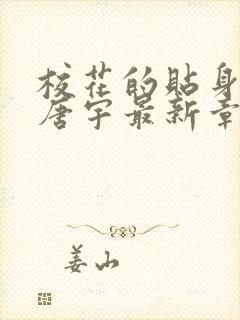 校花的贴身
唐宇最新章
姜山